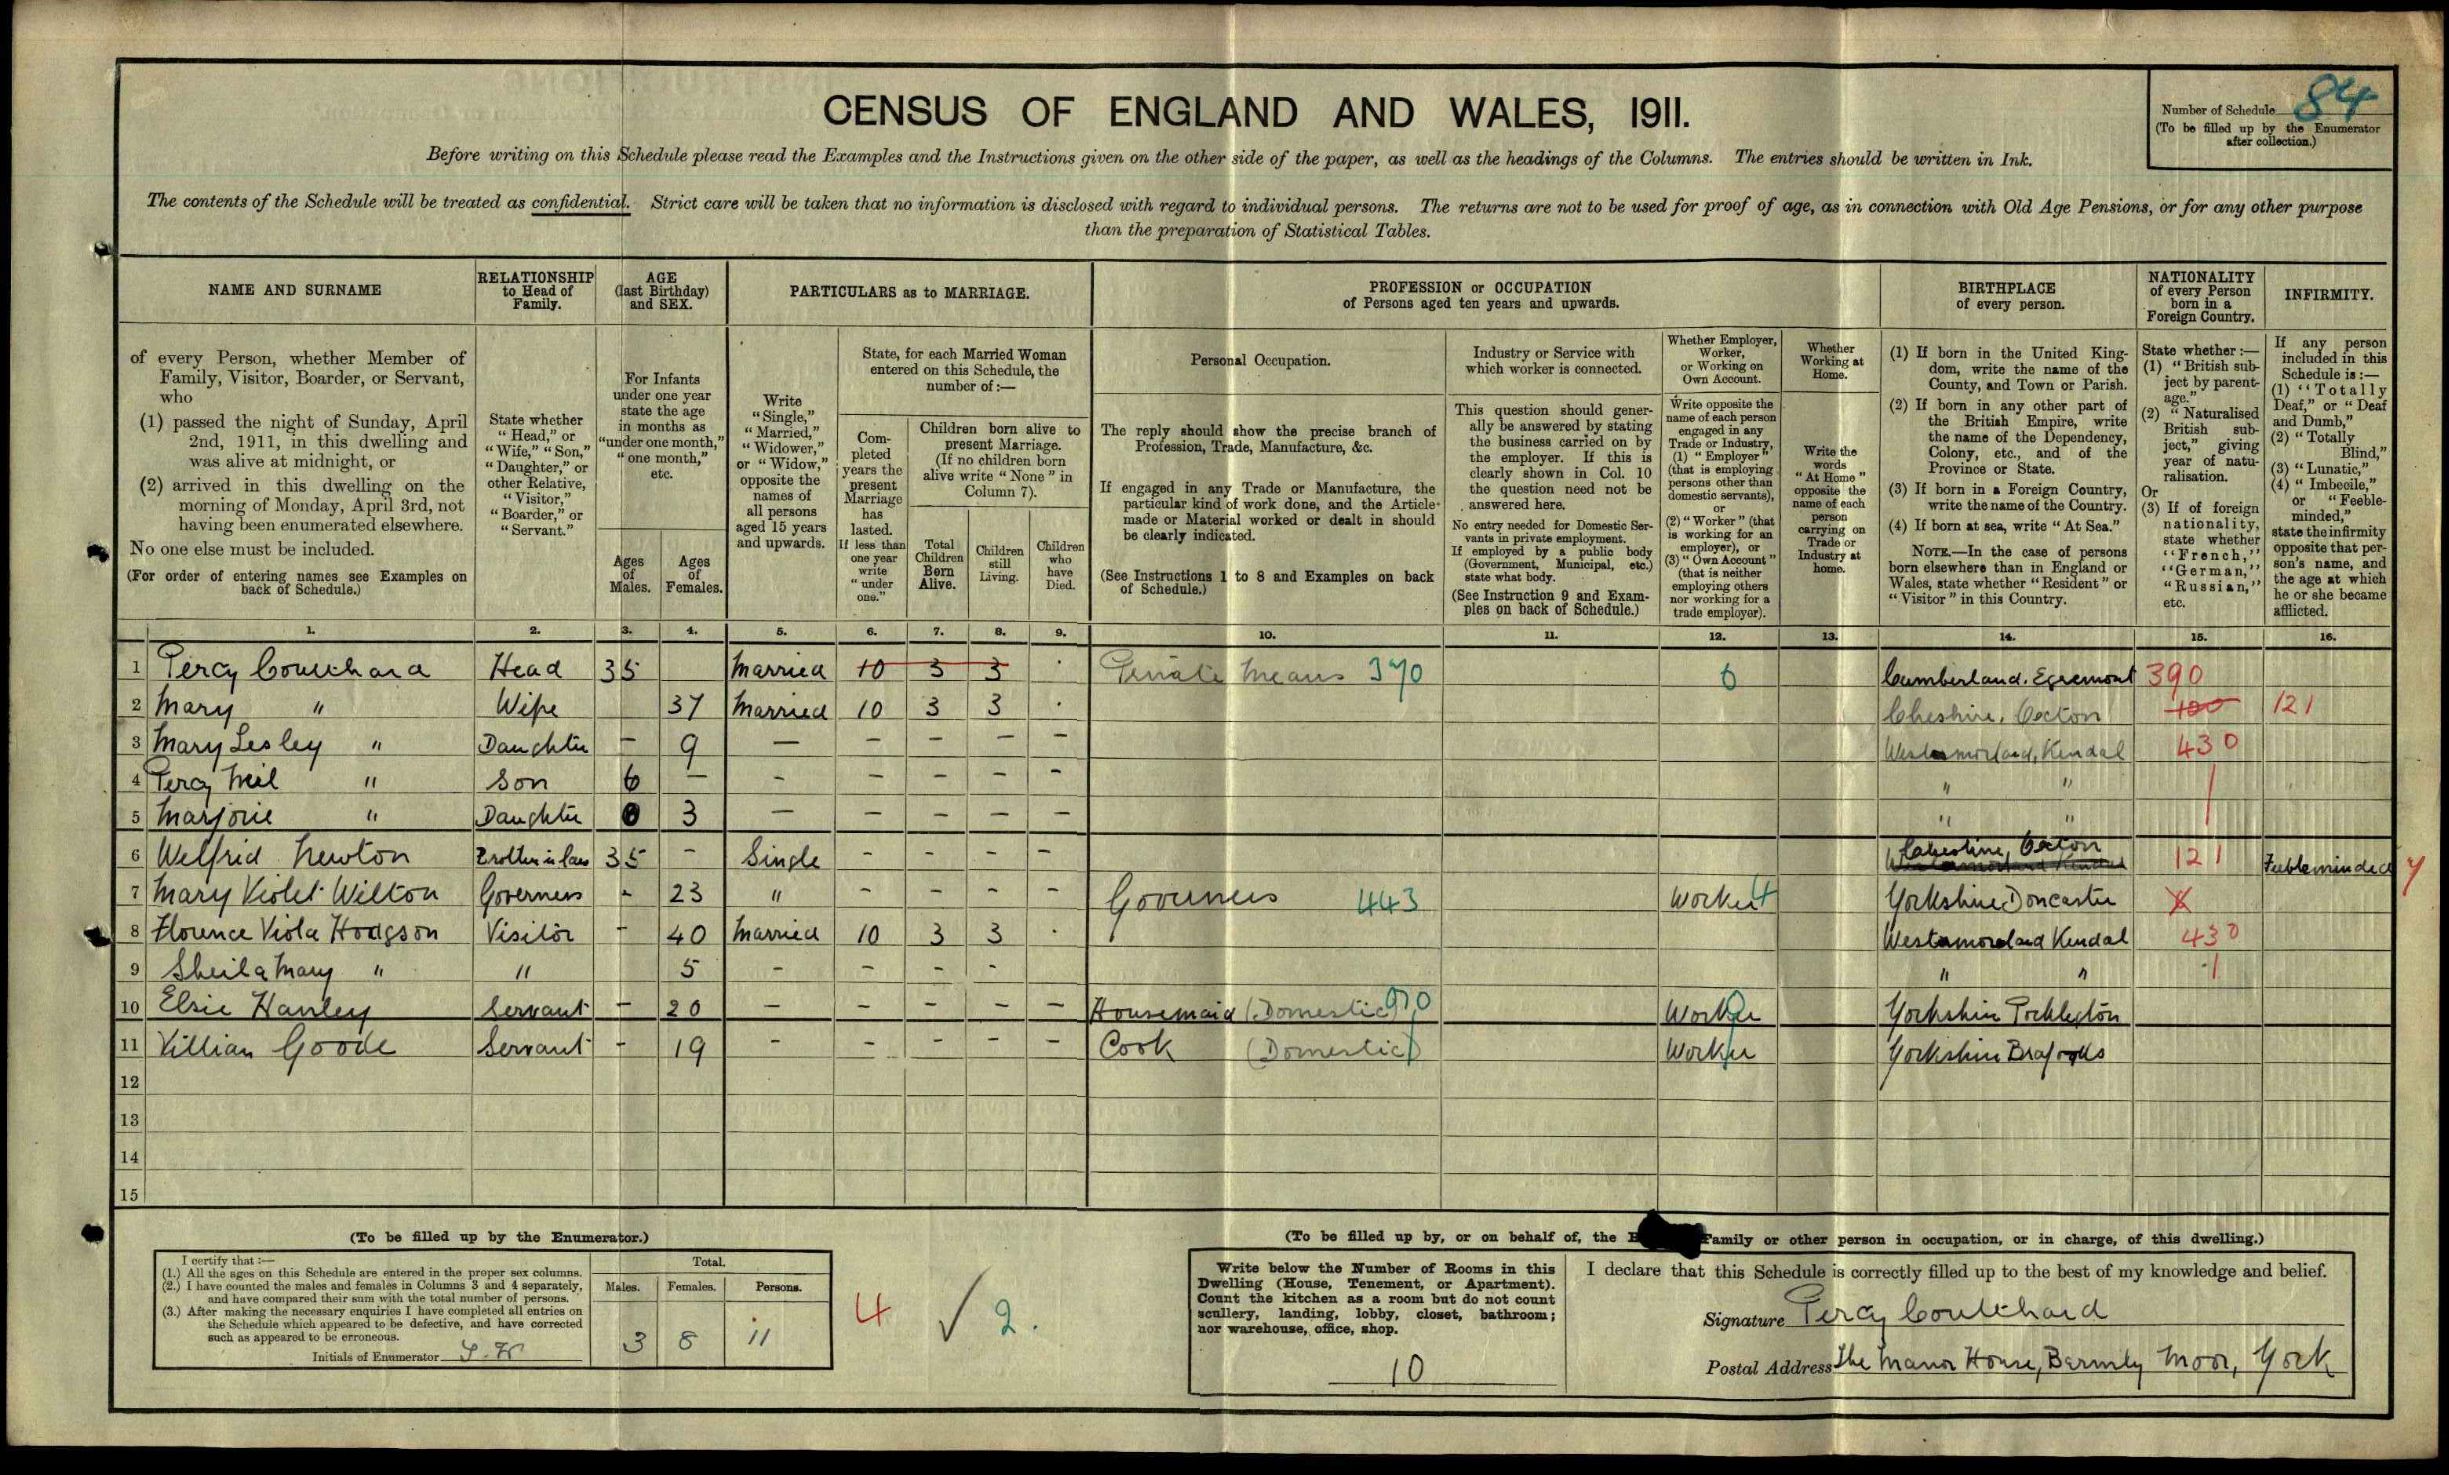 CENSUS OF ENGLAND AND WALES, 1911.
Number of Schedule 84
(To be filled up by the Enumerator
after collection.)
Before writing on this Schedule please read the Examples and the Instructions given on the other side of the paper, as well as the headings of the Columns. The entries should be written in Ink.
The contents of the Schedule will be treated as confidential. Strict care will be taken that no information is disclosed with regard to individual persons. The returns are not to be used for proof of age, as in connection with Old Age Pensions, or for any other purpose
than the preparation of Statistical Tables.
NAME AND SURNAME
of every Person, whether Member of
Family, Visitor, Boarder, or Servant,
who
(1) passed the night of Sunday, April
2nd, 1911, in this dwelling and
was alive at midnight, or
(2) arrived in this dwelling on the
morning of Monday, April 3rd, not
having been enumerated elsewhere.
No one else must be included.
(For order of entering names see Examples on
back of Schedule.)
RELATIONSHIP
to Head of
Family.
State whether
"Head," or
"Wife," "Son,"
"Daughter," or
other Relative,
"Visitor,"
"Boarder," or
"Servant."
AGE
(last Birthday)
and SEX.
For Infants
under one year
state the age
in months as
"under one month,"
"one month,"
etc.
Ages
of
Males.
Ages
of
Females.
PARTICULARS as to MARRIAGE.
Write
"Single,"
"Married,"
"Widower,"
or "Widow,"
opposite the
names of
all persons
aged 15 years
and upwards.
State, for each Married Woman
entered on this Schedule, the
number of :—
Com-
pleted
years the
present
Marriage
has
lasted.
If less than
one year
write
"under
one."
Children born alive to
present Marriage.
(If no children born
alive write "None" in
Column 7).
Total
Children
Born
Alive.
Children
still
Living.
Children
who
have
Died.
PROFESSION or OCCUPATION
of Persons aged ten years and upwards.
Personal Occupation.
The reply should show the precise branch of
Profession, Trade, Manufacture, &c.
If engaged in any Trade or Manufacture, the
particular kind of work done, and the Article
made or Material worked or dealt in should
be clearly indicated.
(See Instructions 1 to 8 and Examples on back
of Schedule.)
Industry or Service with
which worker is connected.
This question should gener-
ally be answered by stating
the business carried on by
the employer. If this is
clearly shown in Col. 10
the question need not be
answered here.
No entry needed for Domestic Ser-
vants in private employment.
If employed by a public body
(Government, Municipal, etc.)
state what body.
(See Instruction 9 and Exam-
ples on back of Schedule.)
Whether Employer,
Worker,
or Working on
Own Account.
Write opposite the
name of each person
engaged in any
Trade or Industry,
(1) "Employer"
(that is employing
persons other than
domestic servants),
or
(2) "Worker" (that
is working for an
employer), or
(3) "Own Account"
(that is neither
employing others
nor working for a
trade employer).
Whether
Working at
Home.
Write the
words
"At Home"
opposite the
name of each
person
carrying on
Trade or
Industry at
home.
BIRTHPLACE
of every person.
(1) If born in the United King-
dom, write the name of the
County, and Town or Parish.
(2) If born in any other part of
the British Empire, write
the name of the Dependency,
Colony, etc., and of the
Province or State.
(3) If born in a Foreign Country,
write the name of the Country.
(4) If born at sea, write "At Sea."
NOTE.—In the case of persons
born elsewhere than in England or
Wales, state whether "Resident" or
"Visitor" in this Country.
NATIONALITY
of every Person
born in a
Foreign Country.
State whether :—
(1) "British sub-
ject by parent-
age."
(2) "Naturalised
British sub-
ject," giving
year of natu-
ralisation.
Or
(3) If of foreign
nationality,
state whether
"French,"
"German,"
"Russian,"
etc.
INFIRMITY.
If any person
included in this
Schedule is :—
(1) "Totally
Deaf," or "Deaf
and Dumb,"
(2) "Totally
Blind,"
(3) "Lunatic,"
(4) "Imbecile,"
or "Feeble-
minded,"
state the infirmity
opposite that per-
son's name, and
the age at which
he or she became
afflicted.
1. 2. 3. 4. 5. 6. 7. 8. 9. 10. 11. 12. 13. 14. 15. 16.
1 Percy Coulthard Head 35 Married 10 3 3 Private Means 370 0 Cumberland. Egremont 390
2 Mary " Wife 37 Married 10 3 3 Cheshire, Oxton 100 121
3 Mary Lesley " Daughter – 9 – – – – – Westmorland, Kendal 430
4 Percy Neil " Son 6 – – – – – – " "
5 Marjorie " Daughter 3 – – – – – " "
6 Welfrid Newton Brother in law 35 – Single – – – – Cheshire, Oxton 121 Feebleminded
7 Mary Violet Wilton Governess – 23 " – – – – Governess 443 Worker Yorkshire Doncaster
8 Florence Viola Hodgson Visitor – 40 Married 10 3 3 Westmoreland Kendal 430
9 Sheila Mary " " 5 – – – – " "
10 Elsie Hanley Servant – 20 – – – – – Housemaid (Domestic) Worker Yorkshire
11 Villian Goode Servant – 19 – – – – – Cook (Domestic) Worker Yorkshire
12
13
14
15
(To be filled up by the Enumerator.)
I certify that :—
(1.) All the ages on this Schedule are entered in the proper sex columns.
(2.) I have counted the males and females in Columns 3 and 4 separately,
and have compared their sum with the total number of persons.
(3.) After making the necessary enquiries I have completed all entries on
the Schedule which appeared to be defective, and have corrected
such as appeared to be erroneous.
Initials of Enumerator
Total.
Males. Females. Persons.
3 8 11
4 ✓ 2.
(To be filled up by, or on behalf of, the Family or other person in occupation, or in charge, of this dwelling.)
Write below the Number of Rooms in this
Dwelling (House, Tenement, or Apartment).
Count the kitchen as a room but do not count
scullery, landing, lobby, closet, bathroom;
nor warehouse, office, shop.
10
I declare that this Schedule is correctly filled up to the best of my knowledge and belief.
Signature Percy Coulthard
Postal Address The Manor House, Barmby Moor, York